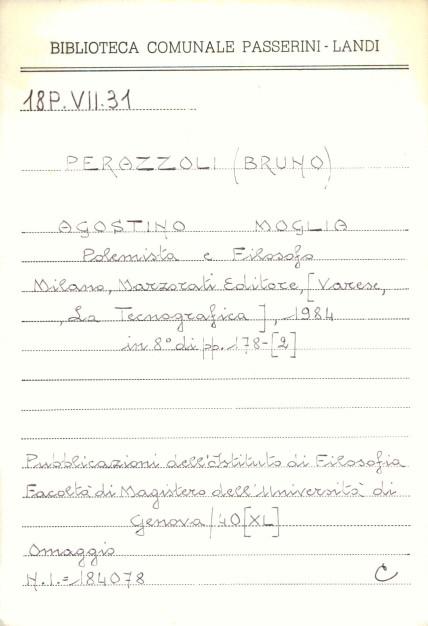 BIBLIOTECA COMUNALE PASSERINI-LANDI
18P.VII.31
PERAZZOLI (BRUNO)
AGOSTINO MOGLIA
Polemista e Filosofo
Milano, Marzorati Editore, [Varese,
, La Tecnografica], 1984
in 8° di pp. 178-[2]
Pubblicazioni dell'Istituto di Filosofia
Facoltà di Magistero dell'Università di
Genova/40[XL]
Omaggio
N.I.=184078 C